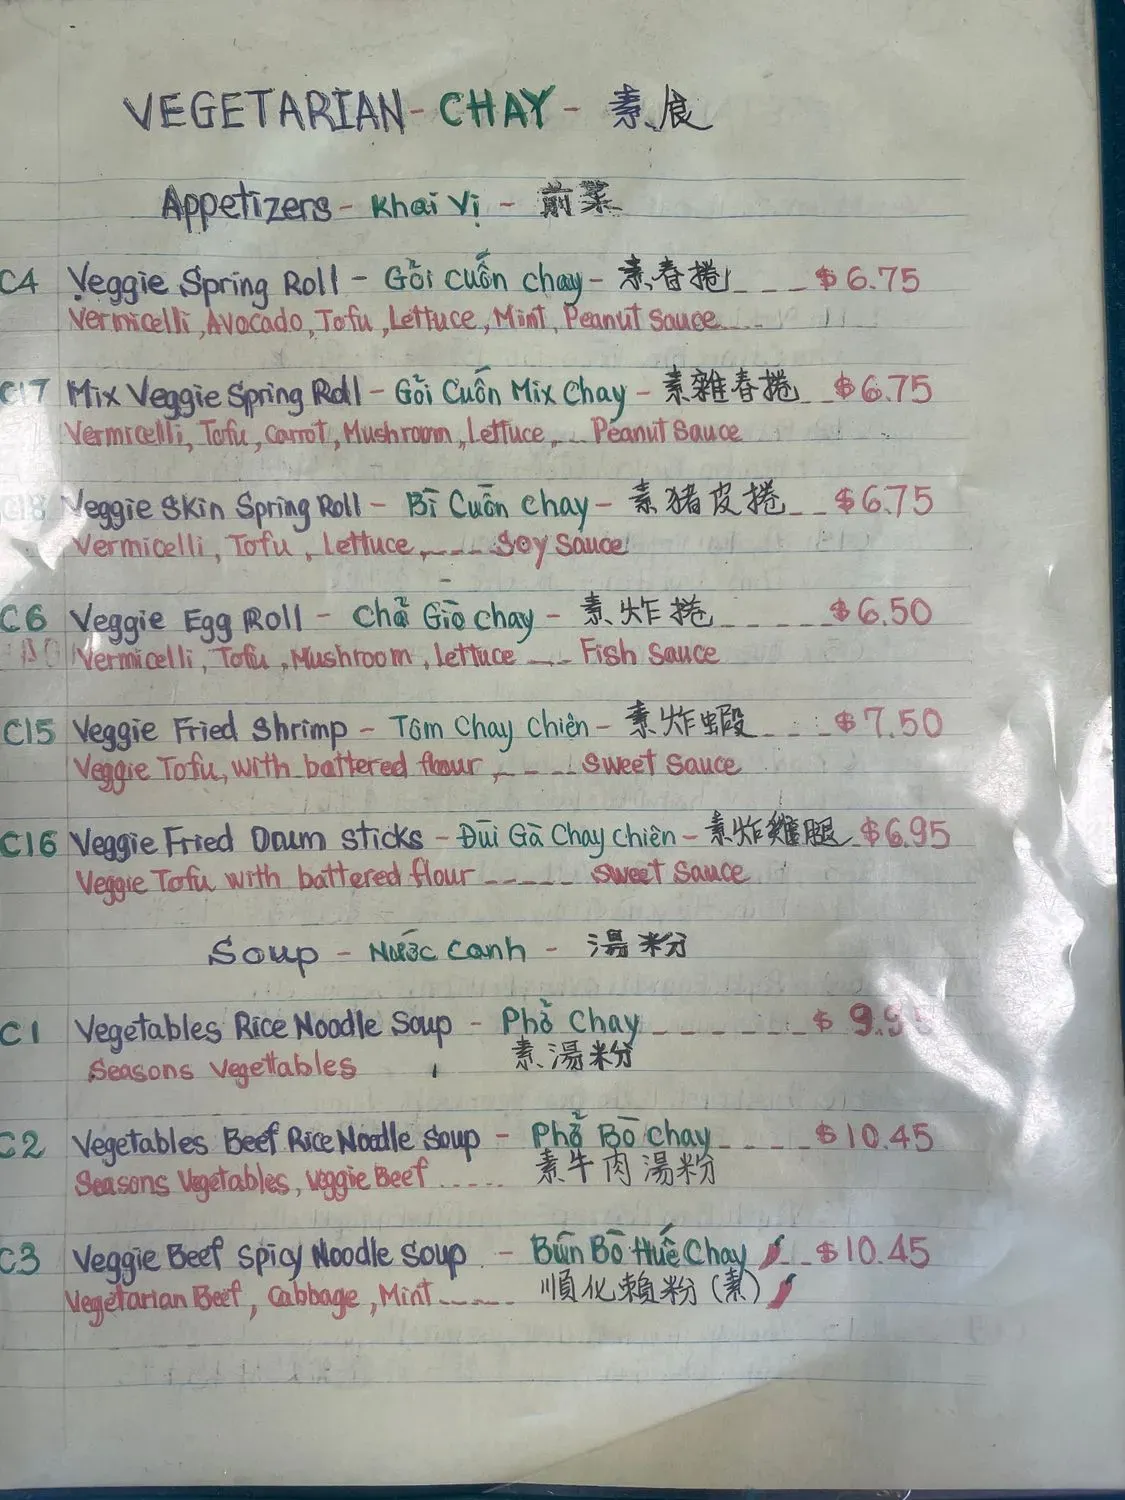 VEGETARIAN - CHAY - 素食
Appetizers - Khai Vị - 前菜
C4 Veggie Spring Roll - Gỏi Cuốn Chay - 素春捲 $6.75
Vermicelli, Avocado, Tofu, Lettuce, Mint, Peanut Sauce
C17 Mix Veggie Spring Roll - Gỏi Cuốn Mix Chay - 素雜春捲 $6.75
Vermicelli, Tofu, Carrot, Mushroom, Lettuce, Peanut Sauce
C18 Veggie Skin Spring Roll - Bì Cuốn Chay - 素豬皮捲 $6.75
Vermicelli, Tofu, Lettuce, Soy Sauce
C6 Veggie Egg Roll - Chả Giò Chay - 素炸捲 $6.50
Vermicelli, Tofu, Mushroom, Lettuce Fish Sauce
C15 Veggie Fried Shrimp - Tôm Chay Chiên - 素炸蝦 $7.50
Veggie Tofu, with battered flour, Sweet Sauce
C16 Veggie Fried Drum Sticks - Đùi Gà Chay Chiên - 素炸雞腿 $6.95
Veggie Tofu with battered flour Sweet Sauce
Soup - Nước Canh - 湯粉
C1 Vegetables Rice Noodle Soup - Phở Chay $9.95
Seasons Vegettables 素湯粉
C2 Vegetables Beef Rice Noodle Soup - Phở Bò Chay $10.45
Seasons Vegetables, Veggie Beef 素牛肉湯粉
C3 Veggie Beef Spicy Noodle Soup - Bún Bò Huế Chay $10.45
Vegetarian Beef, Cabbage, Mint 順化賴粉(素)